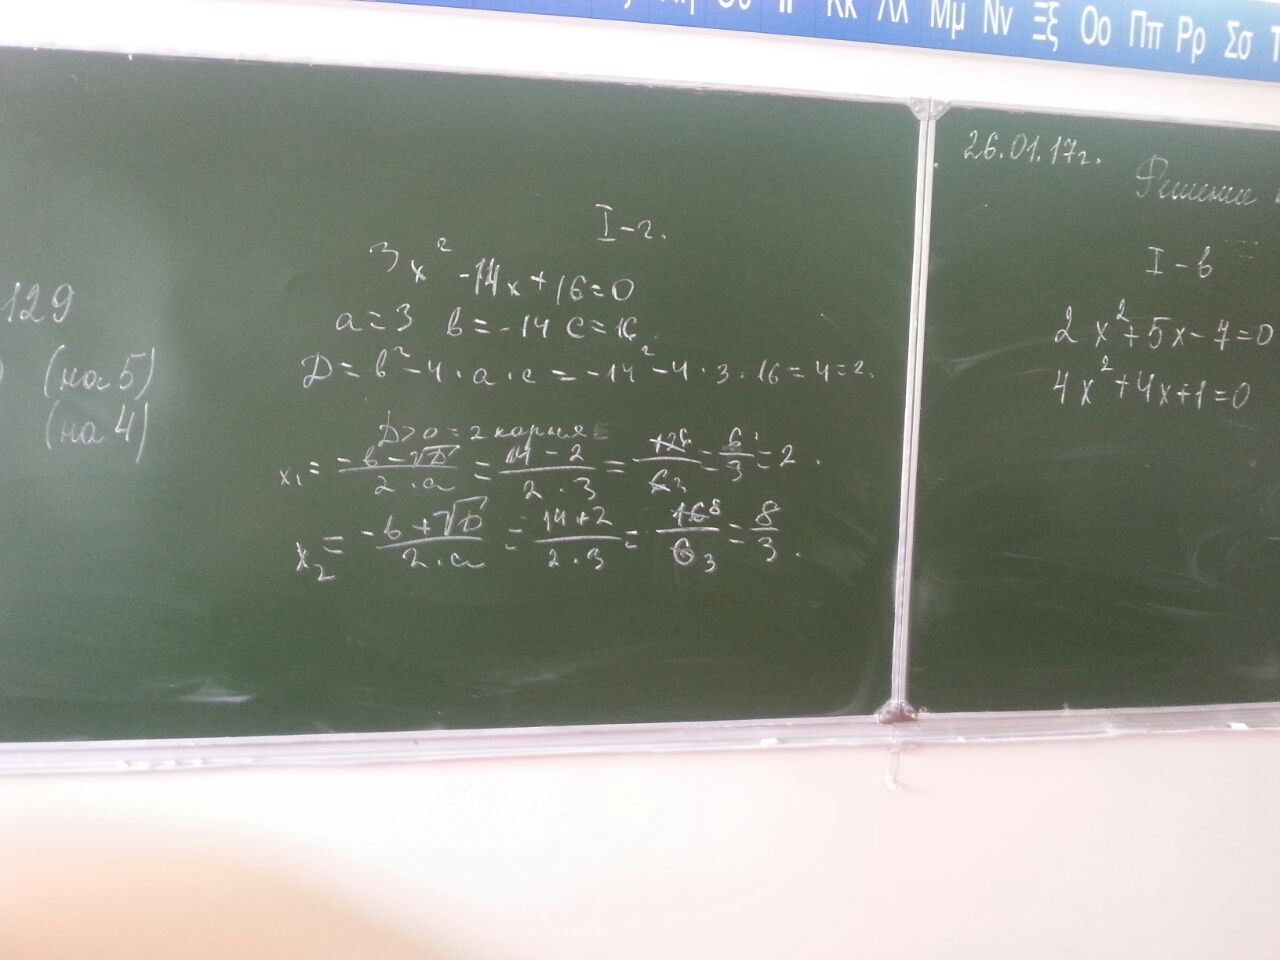 Кк Λλ Μμ Νν Ξξ Οο Ππ Ρρ Σσ Τ
129
(на 5)
(на 4)
I-г.
3x² -14x+16=0
a=3 в=-14 c=16.
Д=в²-4·a·c=-14²-4·3·16=4=2.
Д>0=2 корня
x₁= -в-√D / 2·a = 14-2 / 2·3 = 12 6 / 6 3 = 6 / 3 = 2.
x₂= -в+√D / 2·a = 14+2 / 2·3 = 16 8 / 6 3 = 8 / 3.
26.01.17г.
Решение
I-в
2x²+5x-7=0
4x²+4x+1=0